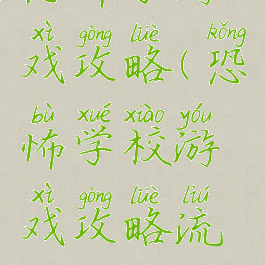 xì gōng lüè kǒng
戏攻略(恐
bù xué xiào yóu
怖学校游
xì gōng lüè liú
戏攻略流